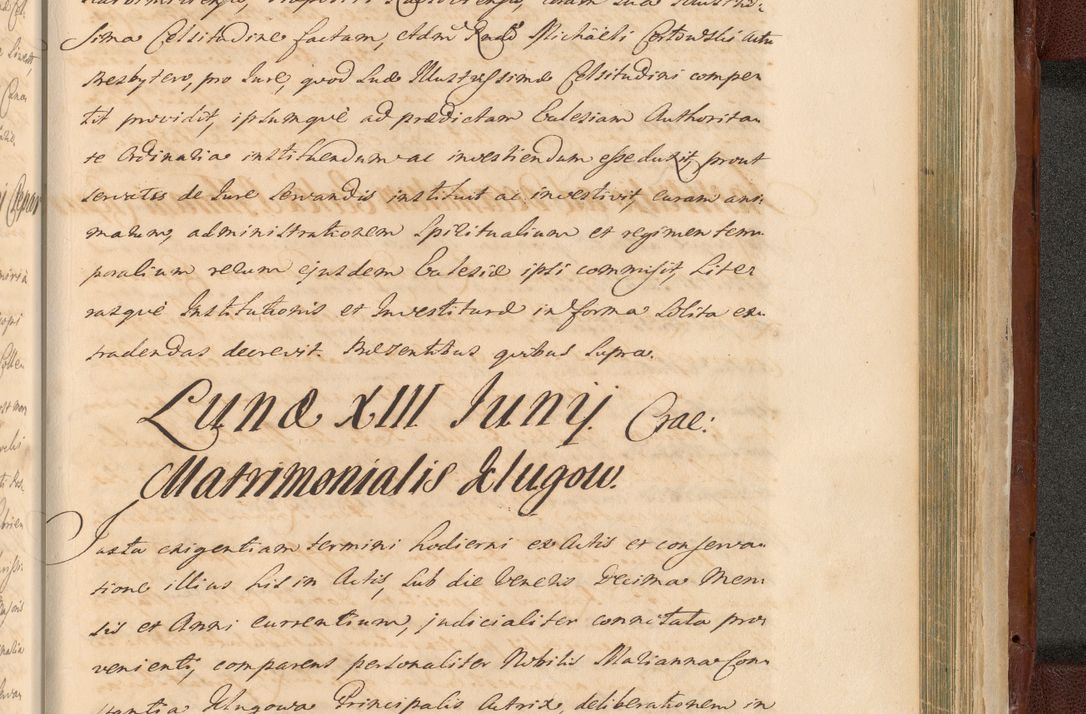 sima Celsitudine factam, etdm Rndo Michaeli Certowski Actu
Presbytero, pro Jure, quod Suæ Illustrissimæ Celsitudini compe
tit providit, ipsumque ad prædictam Ecclesiam Authorita
te Ordinaria instituendum ac investiendum esse duxit, prout
servatis de Jure servandis instituit ac investivit, curam ani
marum, administrationem Spiritualium et regimen tem
poralium rerum ejusdem Ecclesiæ ipsi commisit, Liter
rasque Institutionis et Investituræ in forma solita ex
tradendas decrevit. Præsentibus quibus supra.
Lunæ XIII Junij. Crac:
Matrimonialis Klugow.
Juxta exigentiam termini hodierni ex Actis et conserva
tione illius his in Actis, sub die Veneris Decima Men
sis et Anni currentium, judicialiter connotata pro
venienti, comparens personaliter Nobilis Marianna Con
stantia Klugowa Principalis Actrix, deliberationem in